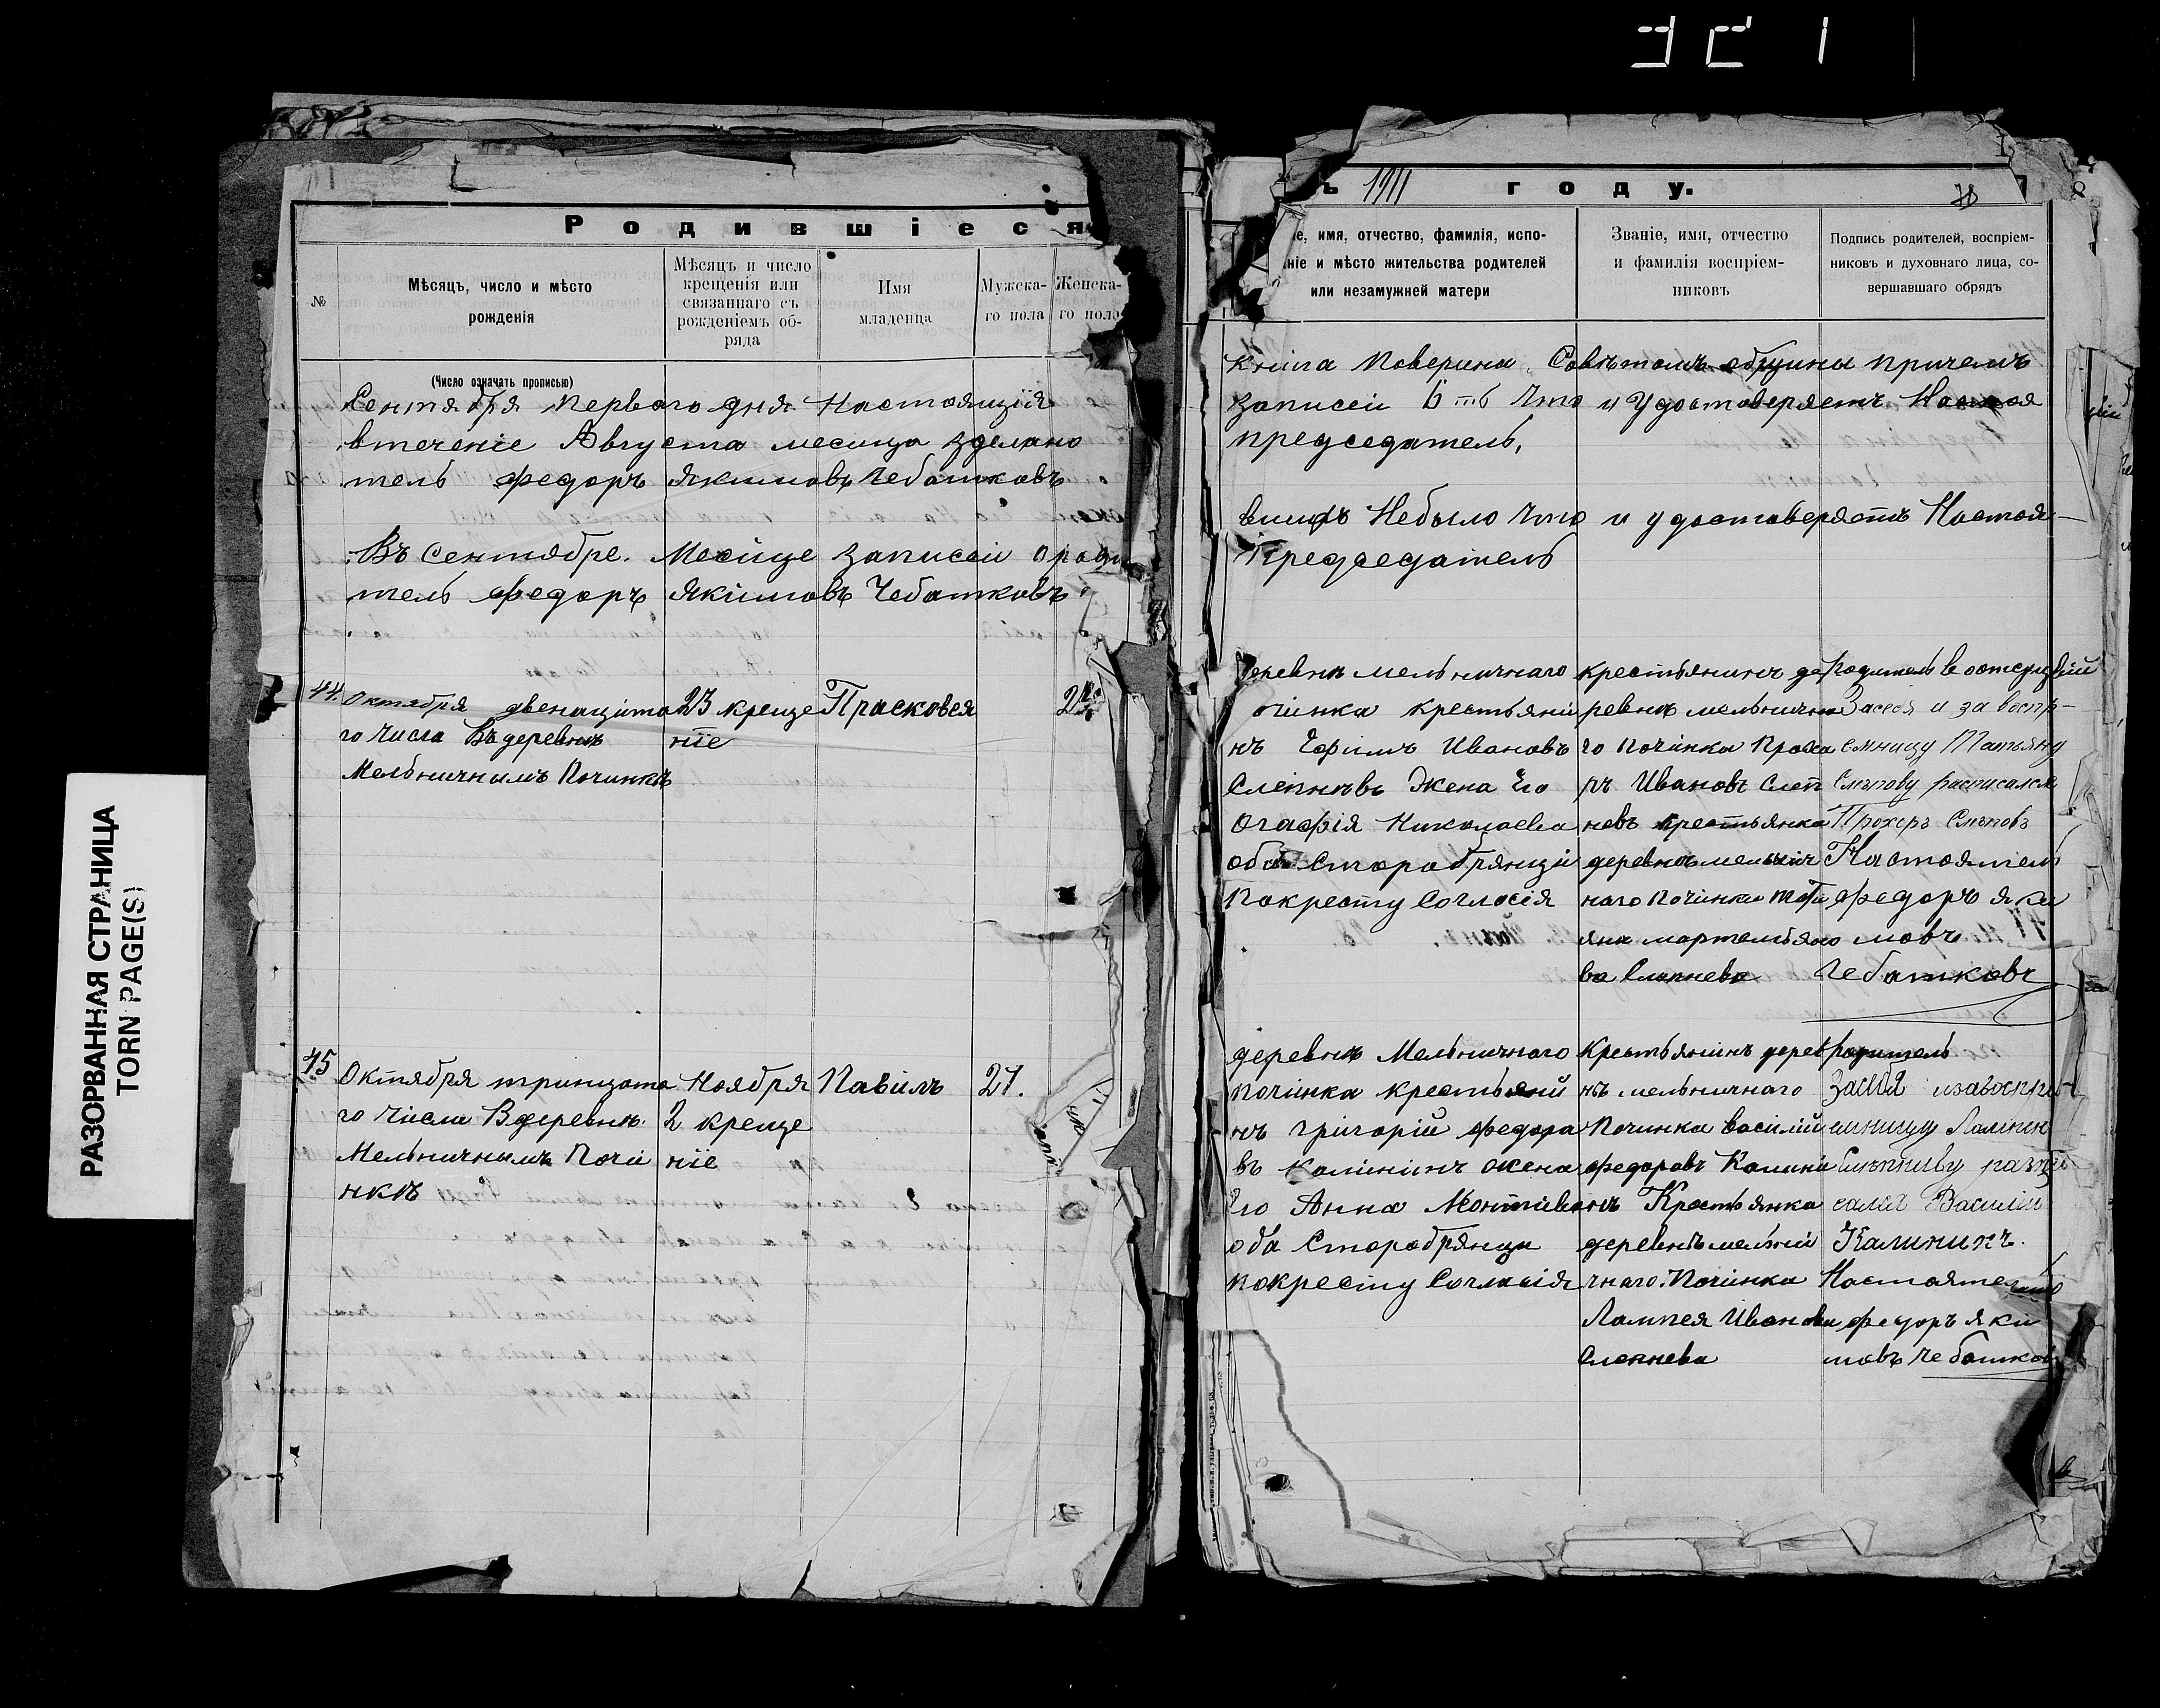 1
РАЗОРВАННАЯ СТРАНИЦА
TORN PAGE(S)
Родившіеся
№
Мѣсяцъ, число и мѣсто
рожденія
Мѣсяцъ и число
крещенія или
связаннаго съ
рожденіемъ об-
ряда
Имя
младенца
Мужска-
го пола
Женска-
го пола
(Число означать прописью)
Сентября первого дня Настоящія
втеченіе Августа месица зделано
тель федоръ Якимовъ Чебатковъ
Въ Сентябре. Месіце записеи о роди
тель федоръ Якимовъ Чебатковъ
44.
Октября двенацато
го числа Въ деревнѣ
Мельничнымъ Починкѣ
23 креще
ніе
Прасковея
45
Октября трицато
го числа В деревнѣ
Мельничнымъ Почи
нкѣ
Ноября
2 креще
ніе
Павилъ
27.
ъ 1911 году.
е, имя, отчество, фамилія, испо-
ніе и мѣсто жительства родителей
или незамужней матери
Званіе, имя, отчество
и фамилія воспріем-
никовъ
Подпись родителей, воспріем-
никовъ и духовнаго лица, со-
вершавшаго обрядъ
книга поверина Совѣтомъ общины причемъ
записеи 6ть что и удостоверяетъ Настоя
председатель,
Небыло что и удостоверяетъ Настоя-
Председатель
деревнѣ мельничнаго
очинка крестьяни
нъ Ефимъ Ивановъ
Слепневъ Жена Его
Огафія Николаева
оба Старобрянцы
Покресту Согласія
крестьянинъ де
ревнѣ мельнично
го починка Прохо
ръ Ивановъ Слеп
невъ крестьянка
деревнѣ мельнич
наго починка Тоти
яна мартемьяно
ва Слепнева
Родитель
За себя и за воспр-
емницу Татьяну
расписался
Прохоръ
Настоятель
федоръ Яки
мовъ
Чебатковъ
деревнѣ Мельничнаго
починка крестьяни
нъ григорій федоро
въ калінінъ жена
Его Анна
оба Старобрянцы
покресту Согласія
Крестьянинъ дерев
нѣ мельничнаго
Починка василій
федоровъ Калини
нъ Крестьянка
деревнѣ мельни
чнаго. Починка
Лампея Иванова
Слепнева
родитель
за себя изавоспри
емницу
Василий
Калининъ.
Настоятель
федоръ Яки
мовъ Чебатковъ